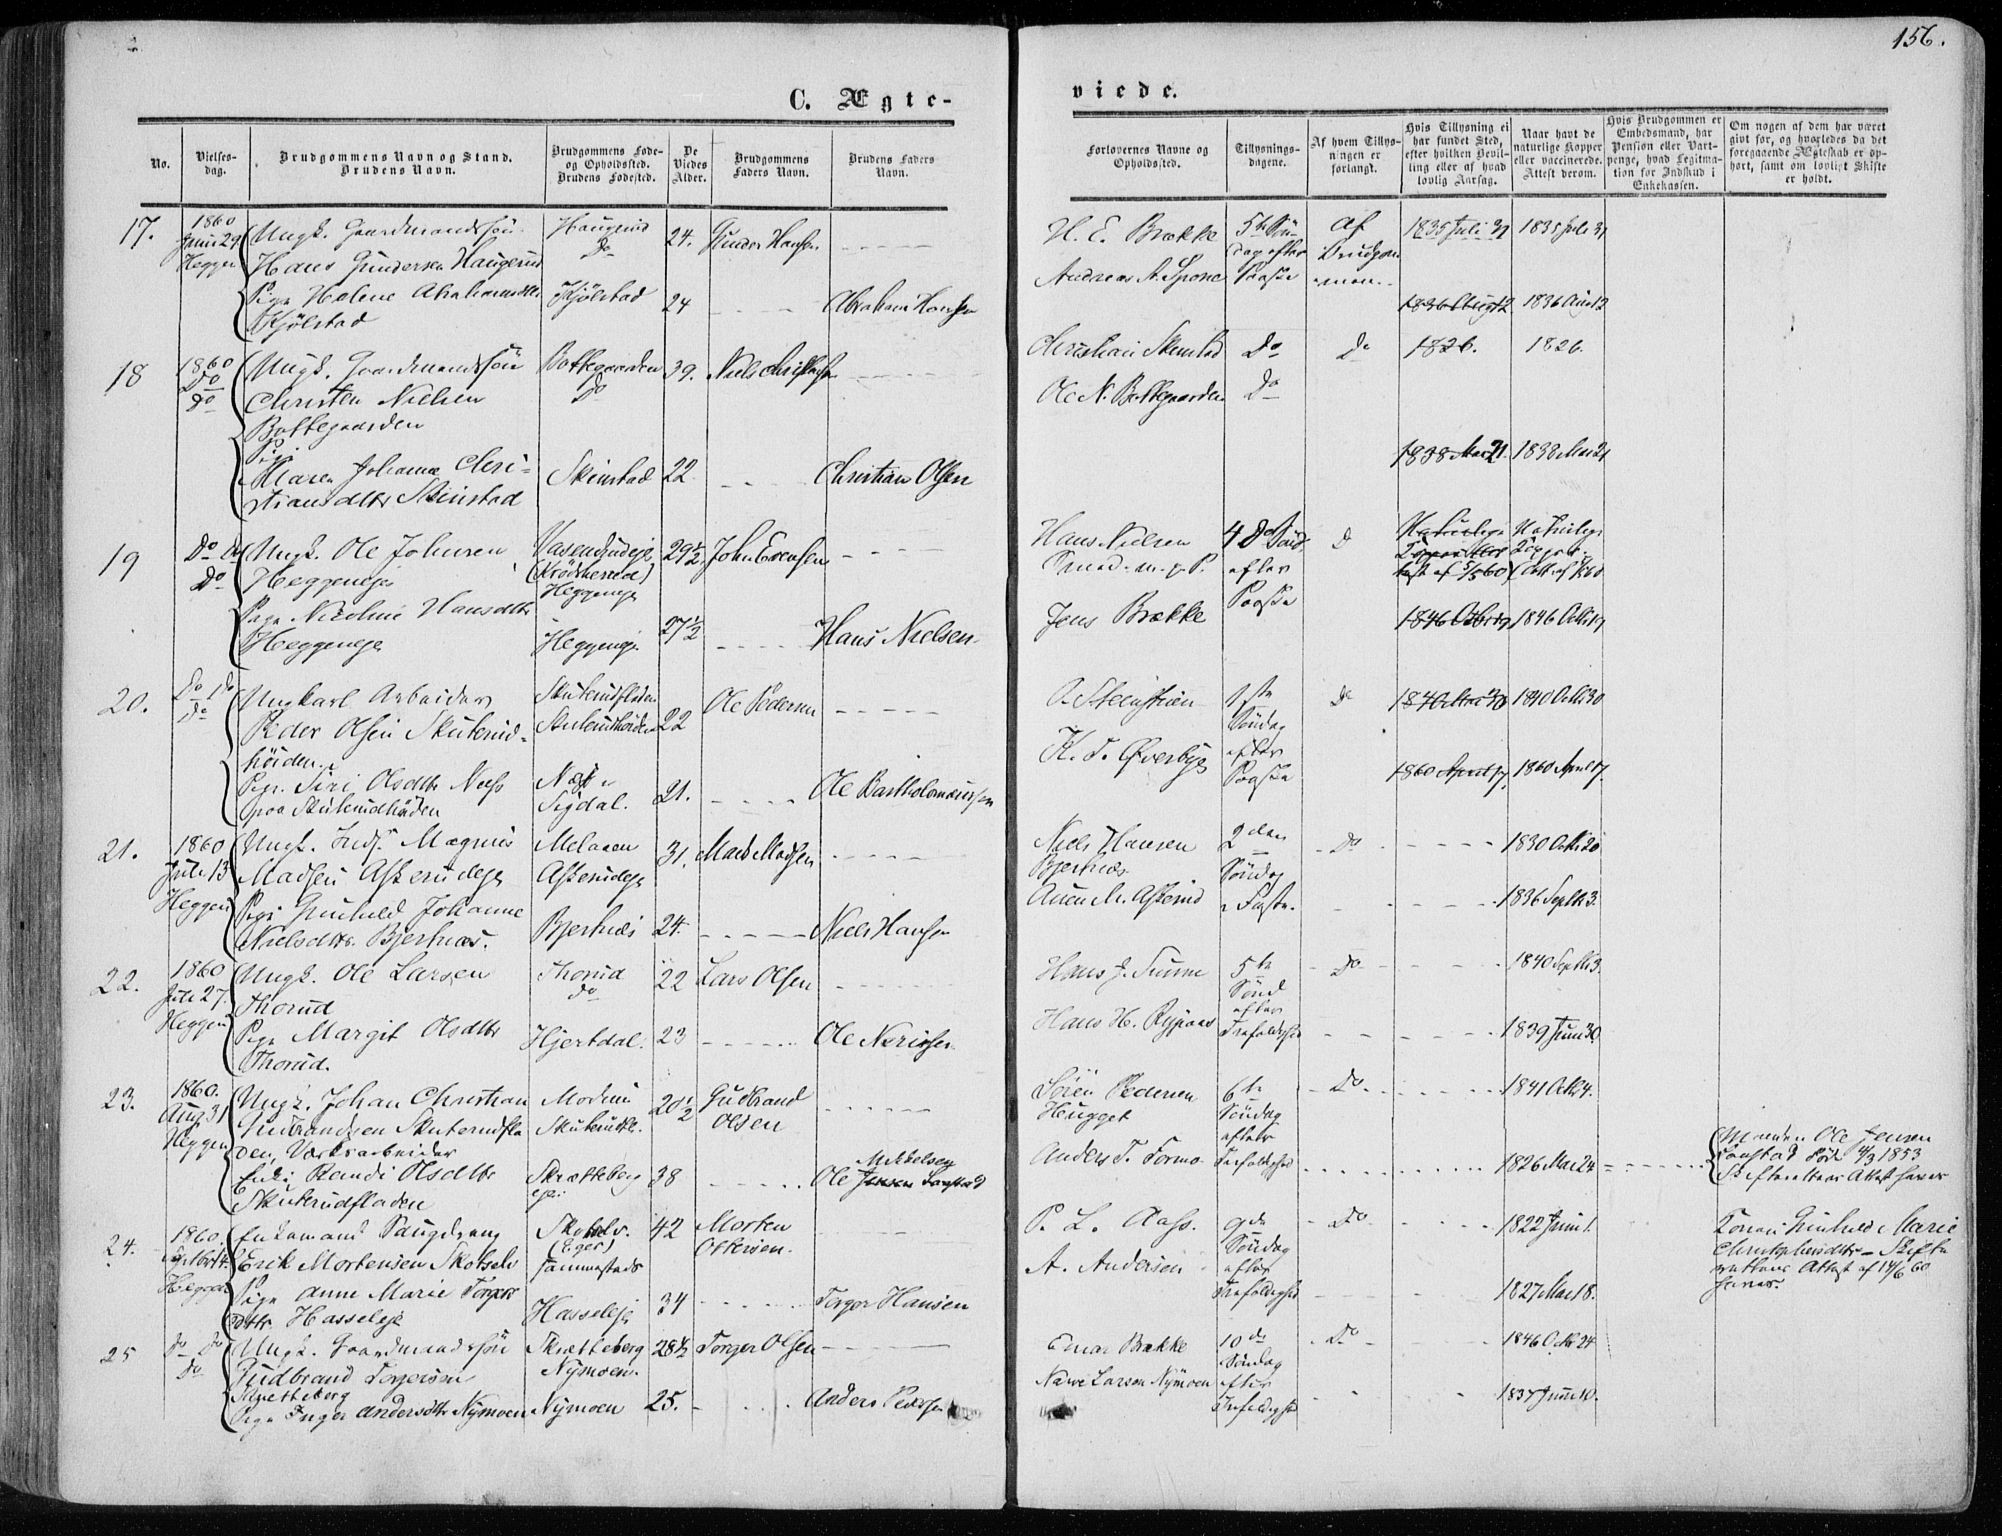 156.
C. Ægte-
viede.
No.
Vielses-
dag.
Brudgommens Navn og Stand.
Brudens Navn.
Brudgommens Føde-
og Opholdssted.
Brudens Fødested.
De
Viedes
Alder.
Brudgommens
Faders Navn.
Brudens Faders
Navn.
Forlovernes Navne og
Opholdssted.
Tillysnings-
dagene.
Af hvem Tillys-
ningen er
forlangt.
Hvis Tillysning ei
har fundet Sted,
efter hvilken Bevil-
ling eller af hvad
lovlig Aarsag.
Naar havt de
naturlige Kopper
eller vaccinerede.
Attest derom.
Hvis Brudgommen er
Embedsmand, har
Pension eller Vart-
penge, hvad Legitima-
tion for Indskud i
Enkekassen.
Om nogen af dem har været
gift før, og hvorledes da det
foregaaende Ægteskab er op-
hørt, samt om lovligt Skifte
er holdt.
17.
1860
Juni 29
Heggen
Ungk. Gaardmandssøn
Hans Gundersen Haugerud
Pige Helene Abrahamsdtr
Kjølstad
Haugerud
Do
Kjølstad
24.
24
Gunder Hansen
Abraham Hansen
H. E. Brække
Andreas A. Spone
5te Søn-
dag efter
Paaske
Af
Brudgom-
men.
1835 Juli 31
1835 Juli 31
1836 Augt 12
1836 Aug 12
18
1860
Do
Do
Ungk. Gaardmandssøn
Christen Nielsen
Bottegaarden
Pige
Maren Johanne Chri-
stiansdtr Skinstad
Bottegaarden
Do
Skinstad
39.
22
Niels Christensen
Christian Olsen
Christian Skinstad
Ole N. Bottegaarden
Do
Do
Do
1826.
1826.
1838 Mai 21
1838 Mai 21
19
Do Do
Do
Ungk. Ole Johnsen
Heggeneje
Pige Nicoline Hansdtr
Heggeneje
(Krødsherred)
Heggeneje
Heggeneje
29½
27½
John Evensen
Hans Nielsen
Hans Nielsen
Jens Brække
4de Sønd
efter
Paaske
Do
Naturlige
Naturlige
1846 Octbr 19
1846 Octbr 19
20.
Do Do
Do
Ungkarl Arbeider
Peder Olsen Skuterud-
høiden.
Pige Siri Olsdtr Næss
paa Skuterudhøiden
Skuterudfladen
Skuterudhøiden
Næss
Sigdal.
22
21.
Ole Pedersen
Ole Bartholomæussen
O. Steensteen
K. T. Øverbye
1ste
Søndag
efter
Paaske
Do
1840 Octb 30
1860 April 17,
1860 April 17,
21.
1860
Juli 13
Heggen
Ungk. Inds. Magnus
Madsen Askerudeje
Pige Gunhild Johanne
Nielsdtr. Bjertnæs.
Modum
Askerudeje
Bjertnæs
31.
24.
Mads Madsen
Niels Hansen
Niels Hansen
Bjertnæs
Anen M. Askerud
2den
Søndag
i Faste.
Do
1830 Octb 20
1836 Septb 3.
22.
1860
Juli 27.
Heggen
Ungk. Ole Larsen
Thorud
Pige Margit Olsdtr
Thorud.
Thorud
Do
Hjertdal.
22
23
Lars Olsen
Hans J. Sunne
Hans H. Rypaas
5te
Sønd
efter
Trefoldighed
Do
1840 Septb 3.
1839 Juni 30.
23.
1860.
Aug. 31
Heggen
Ungk. Johan Christian
Gudbrandsen Skuterudfla
den, Værksarbeider
Enke Randi Olsdtr
Skuterudfladen
Modum
Skuterudfl.
Skrætteberg
eje.
20½
38
Gudbrand
Olsen
Mikkelsen
Ole Jensen
Søren Pedersen
Hugget
Anders T. Formo
6te
Søndag
efter
Trefoldighed
Do
1841 Octb 4.
1826 Mai 24
Manden Ole Jensen
død 4/3 1853
Skifterettens Attest haves
24.
1860.
Heggen
Enkemand Saugdreng
Erik Mortensen Skotselv
Pige Anne Marie Torgers
dtr. Hasseleje
Skotselv.
(Eger)
sammesteds
Hasseleje
42
34
Morten
Ottersen.
Torger Hansen
P. L. Aass.
A. Andersen
9de
Søndag
efter
Trefoldighed
Do
1822 Juni 1.
1827 Mai 18.
Konen Gunhild Marie
Christophersdtr - Skifte
rettens Attest af 14/6 60
haves.
25
Do Do
Do
Ungk. Gaardmandssøn
Gudbrand Torgersen
Skretteberg
Pige Inger Andersdtr Nymoen
Skrætteberg
Nymoen.
Nymoen
28½
25.
Torger Olsen
Anders Pedersen
Einar Brække
Narve Larsen Nymoen
10de
Søndag
efter
Trefoldighed
Do
1846 Octbr 24
1837 Juni 10.